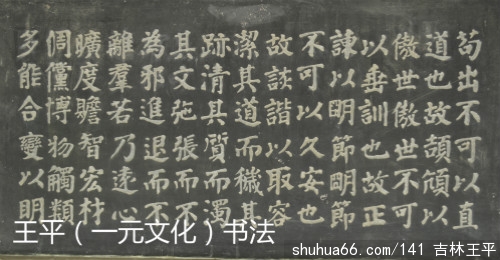 苟出不可以直
道也故頡頏以
傲世傲世不可
以垂訓也故正
諫以明節明節
不可以久安也
故談諧以取容
潔其道而穢其
跡清其質而濁
其文弛張而不
為邪進退而不
離羣若乃遠心
曠度贍智宏材
倜儻博物觸類
多能合變以明
王平（一元文化）书法
shuhua66.com/141 吉林王平